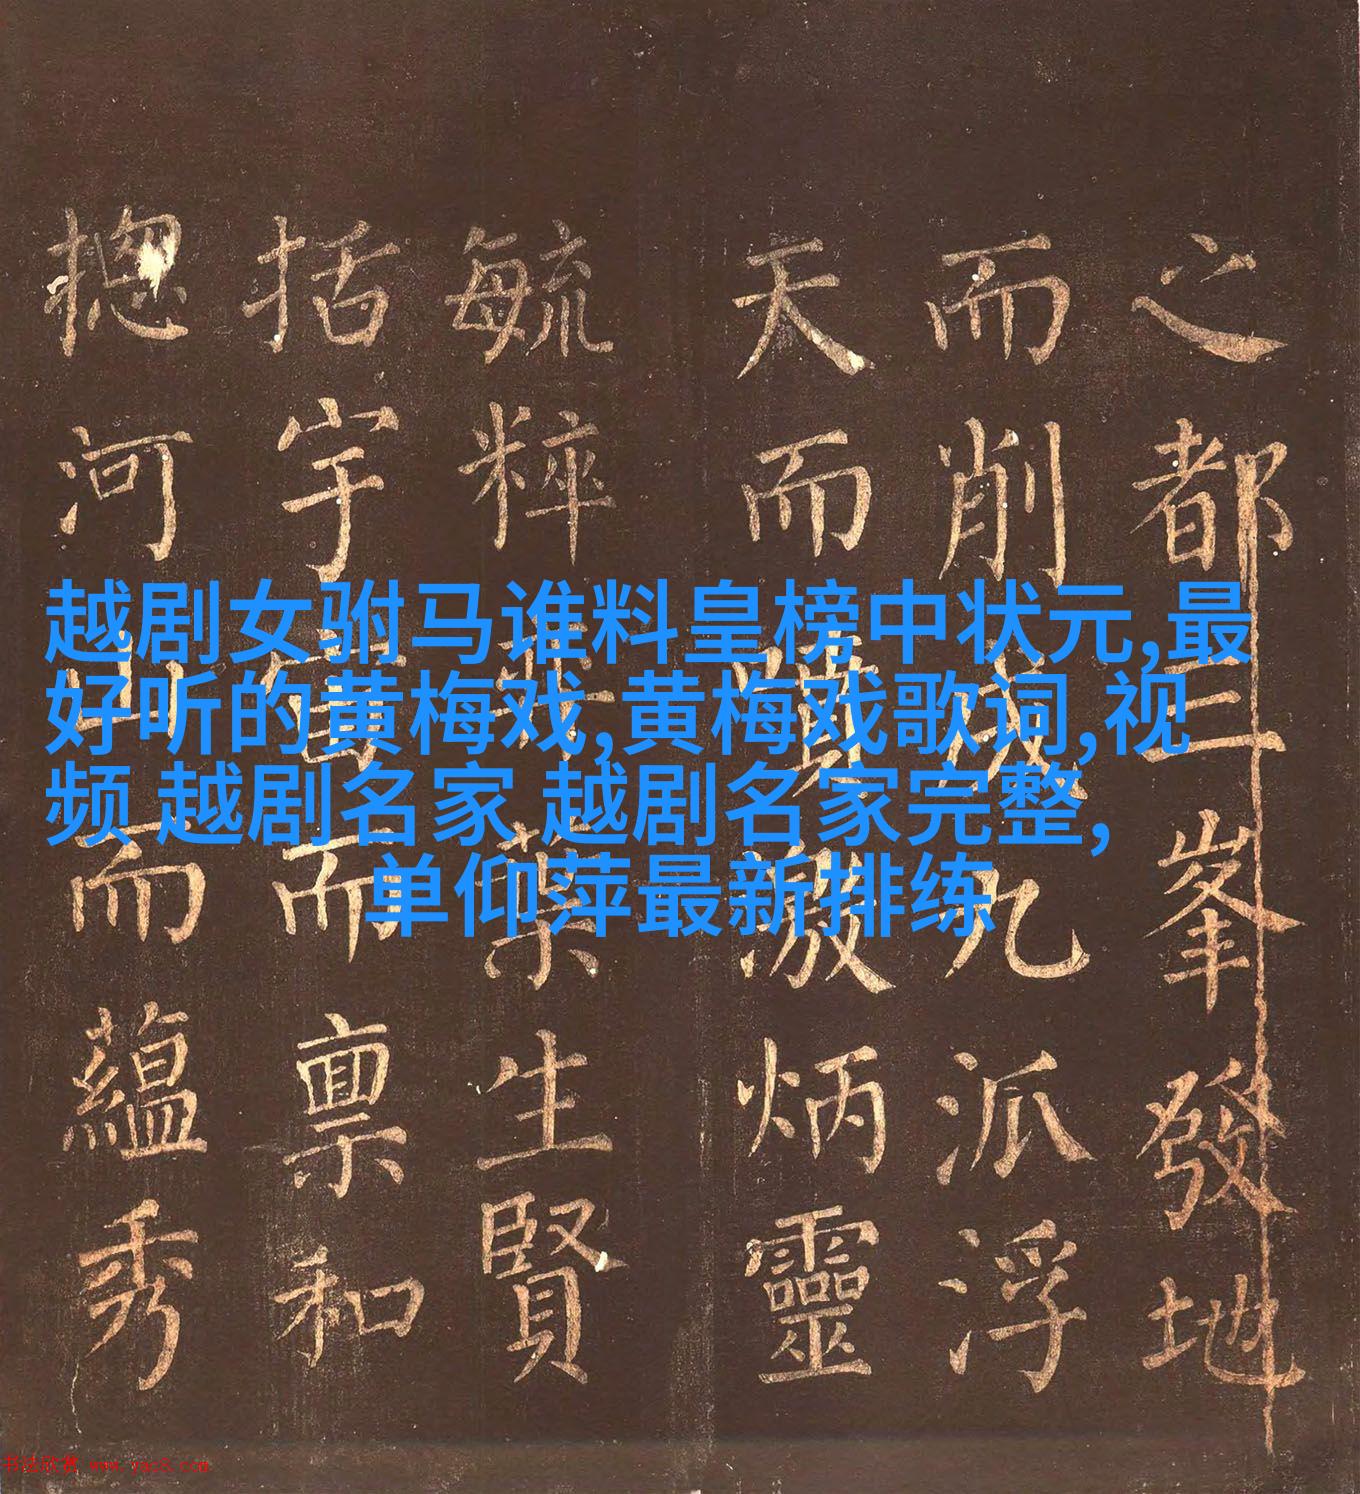 越剧女驸马谁料皇榜中状元,最
好听的黄梅戏,黄梅戏歌词,视
频 越剧名家 越剧名家完整,
单仰萍最新排练
之都三峯發地
而削成九派浮
天而噴激炳靈
毓粹藥生賢
括宇宙而禀和
揔河山而蘊秀
书法欣赏 www.yac8.com